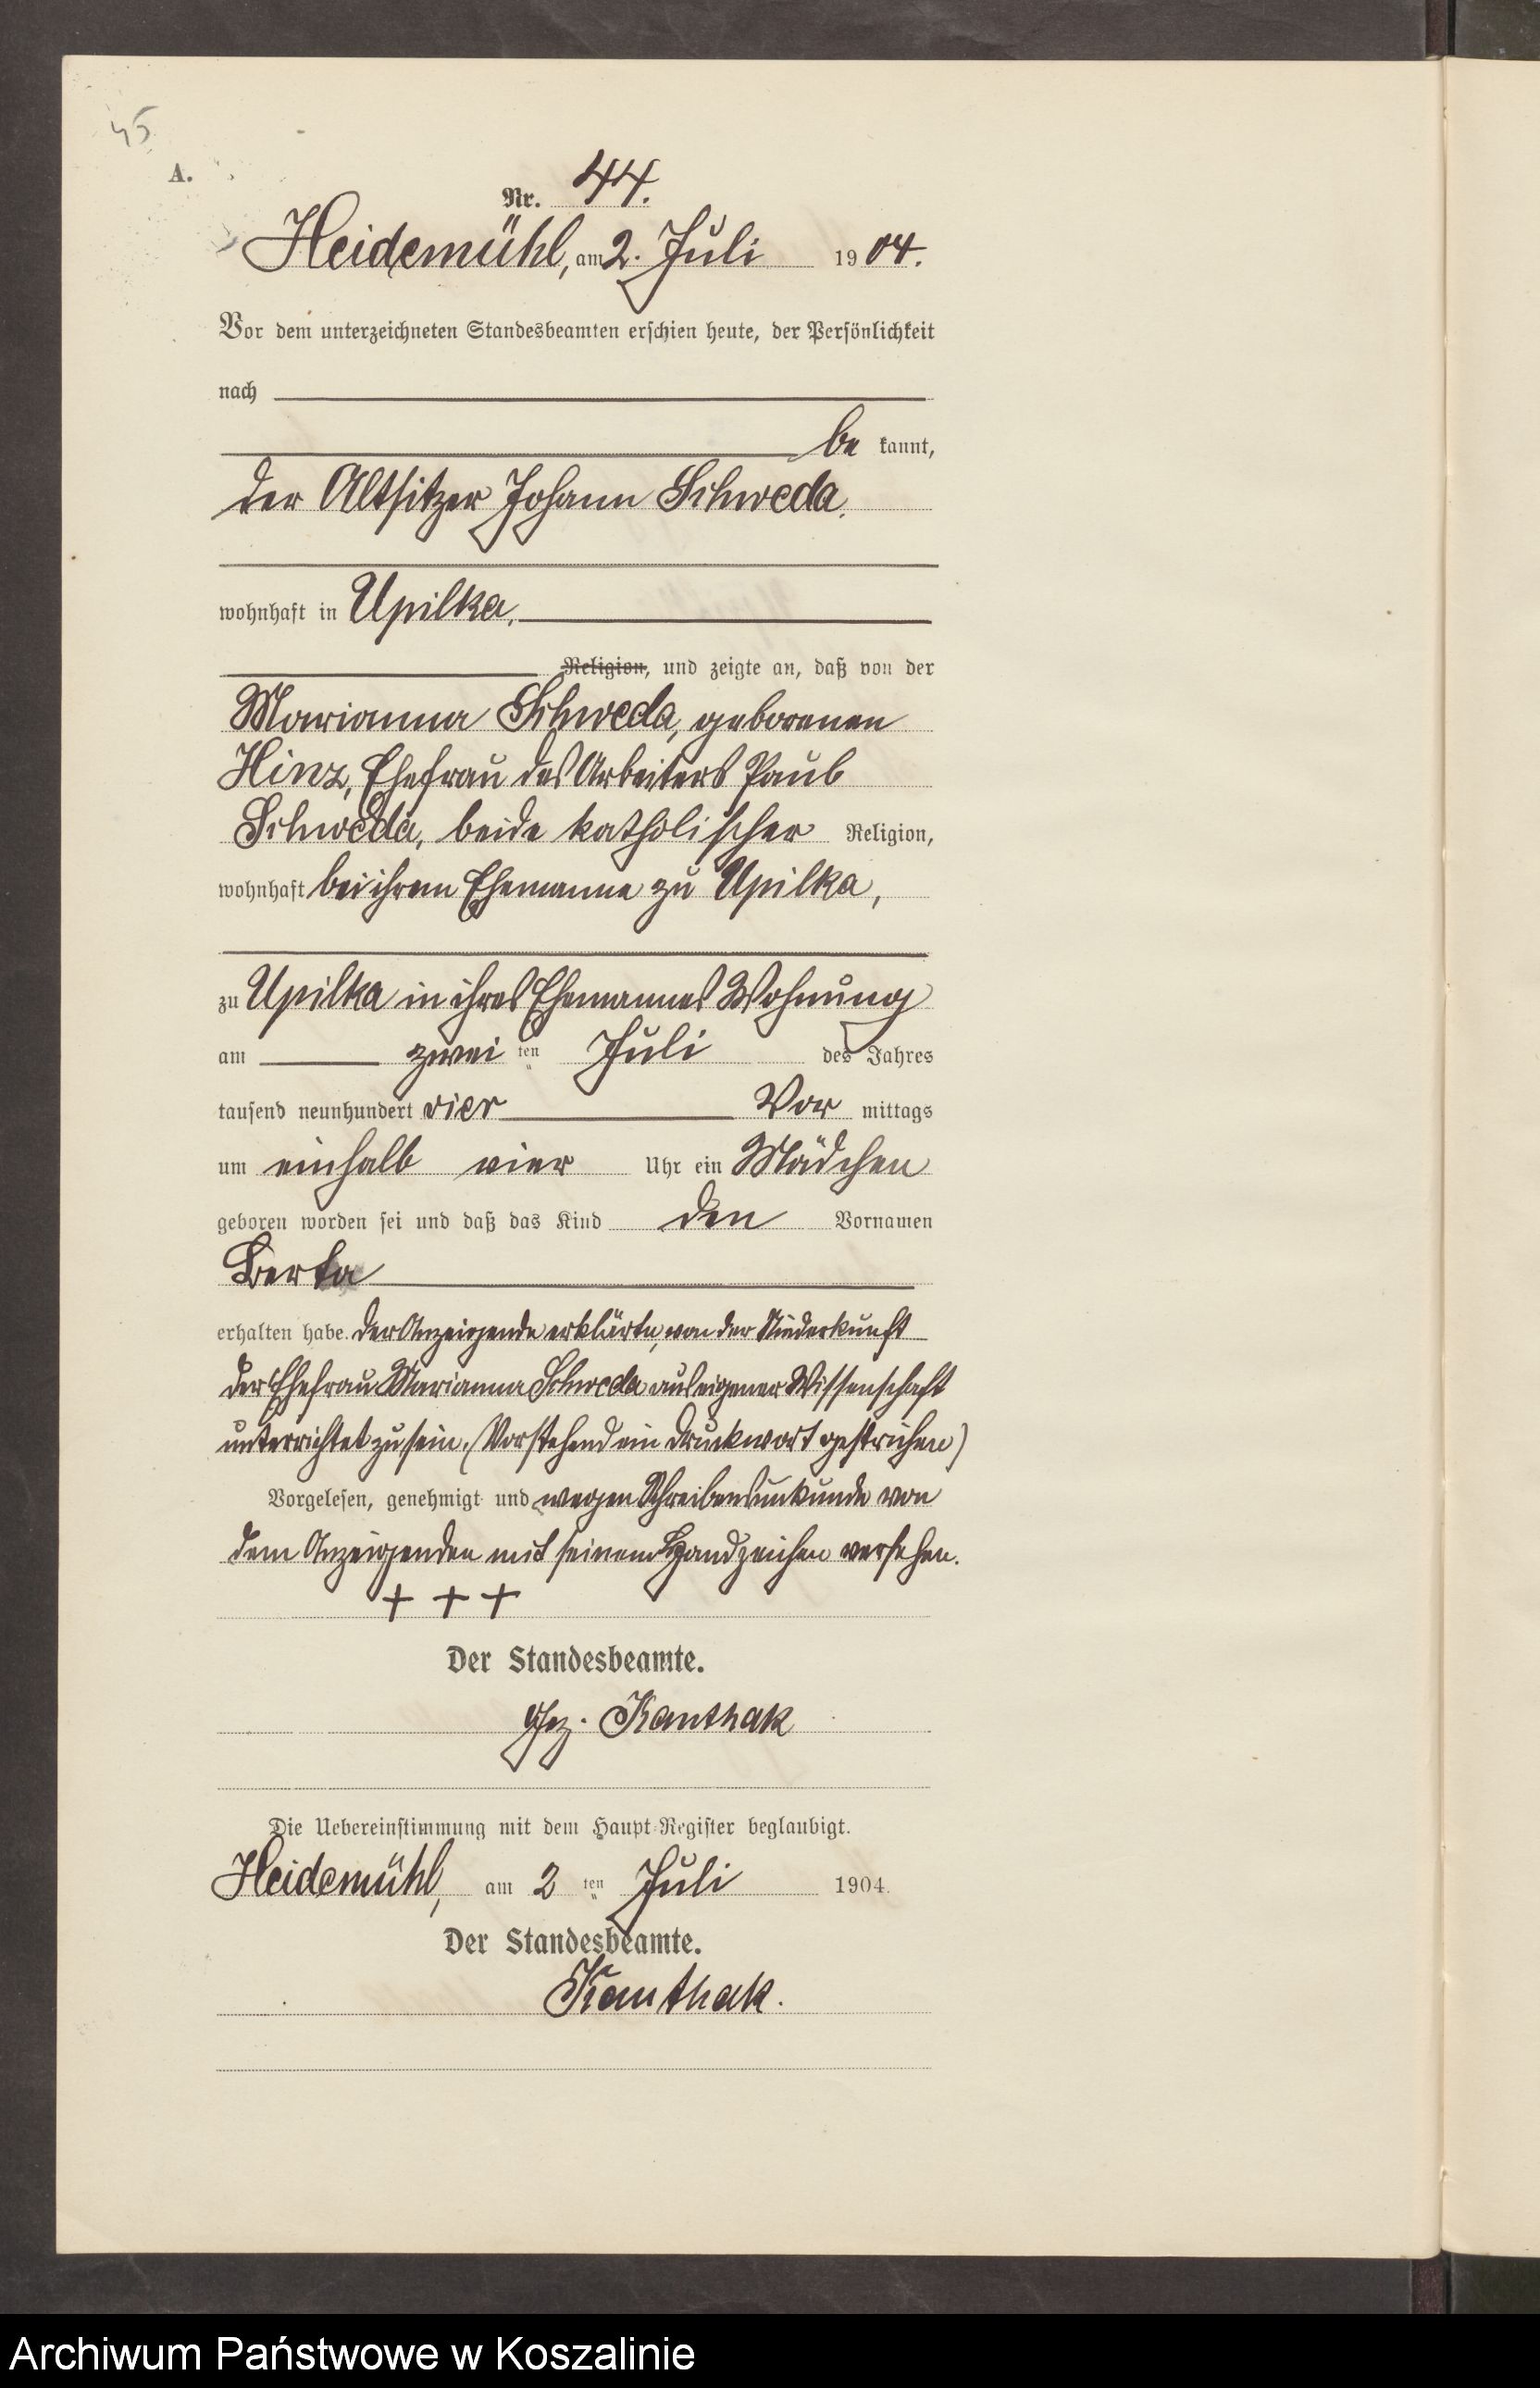 45
A.
Nr. 44.
Heidemühl, am 2. Juli 1904.
Vor dem unterzeichneten Standesbeamten erschien heute, der Persönlichkeit
nach
be kannt,
der Altsitzer Johann Schweda.
wohnhaft in Upilka,
Religion, und zeigte an, daß von der
Marianna Schweda, geborenen
Hinz, Ehefrau des Arbeiters Paul
Schweda, beide katholischer Religion,
wohnhaft bei ihrem Ehemanne zu Upilka,
zu Upilka in ihres Ehemannes Wohnung
am zwei ten Juli des Jahres
tausend neunhundert vier Vor mittags
um einhalb vier Uhr ein Mädchen
geboren worden sei und daß das Kind den Vornamen
Berta
erhalten habe. Der Anzeigende erklärte, von der Niederkunft
der Ehefrau Marianna Schweda aus eigener Wissenschaft
unterrichtet zu sein. (Vorstehend ein Druckwort gestrichen)
Vorgelesen, genehmigt und wegen Schreibensunkunde von
dem Anzeigenden mit seinem Handzeichen versehen.
+ + +
Der Standesbeamte.
gez. Kanthak
Die Uebereinstimmung mit dem Haupt-Register beglaubigt.
Heidemühl, am 2 ten Juli 1904.
Der Standesbeamte.
Kanthak.
Archiwum Państwowe w Koszalinie